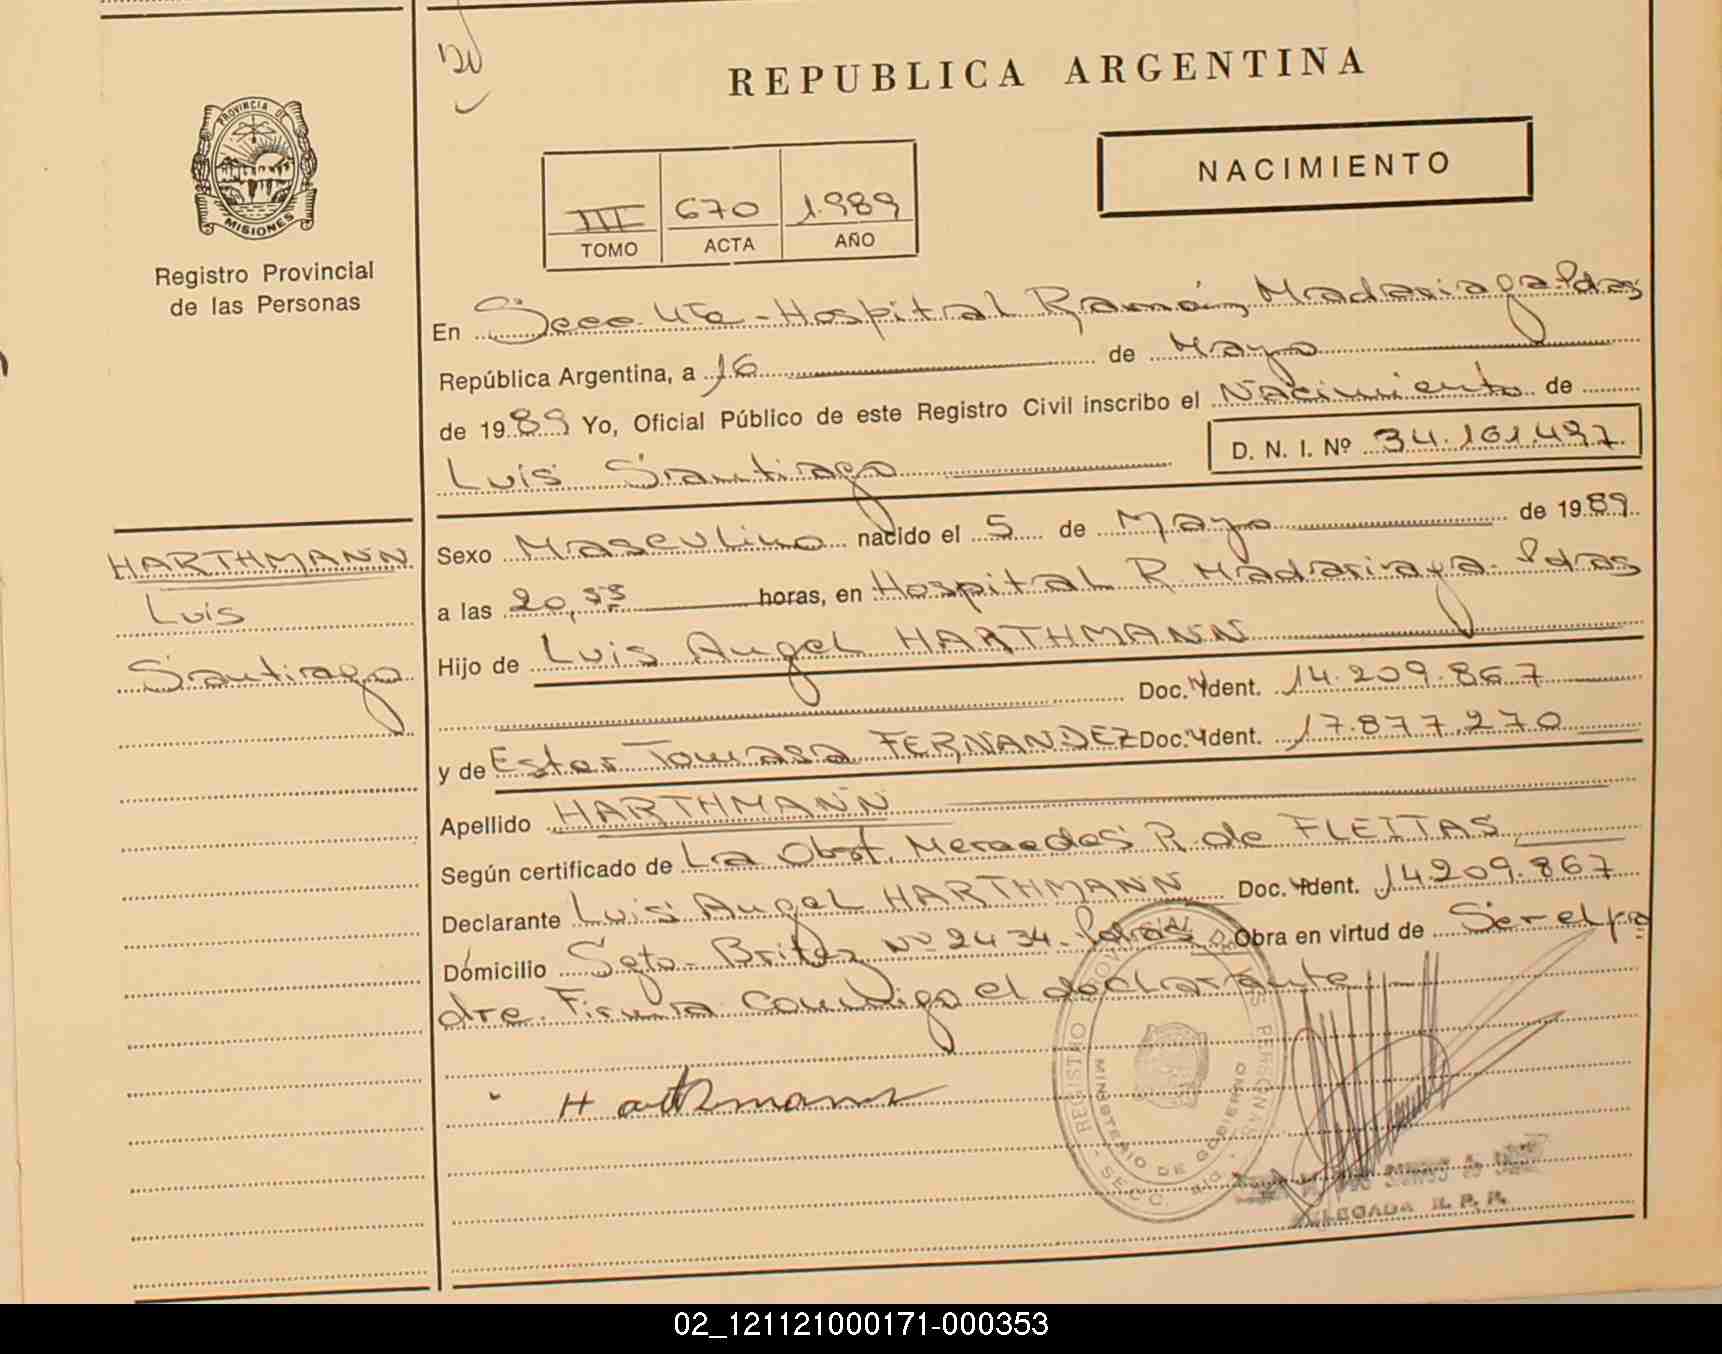 REPUBLICA ARGENTINA
PROVINCIA DE
MISIONES
Registro Provincial
de las Personas
III 670 1.989
TOMO ACTA AÑO
NACIMIENTO
En Secc. 4ta - Hospital Ramón Madariaga Pdas
República Argentina, a 16 de Mayo
de 1989 Yo, Oficial Público de este Registro Civil inscribo el Nacimiento de
Luis Santiago D. N. I. Nº 34.161.497
HARTHMANN
Luis
Santiago
Sexo Masculino nacido el 5 de Mayo de 1989
a las 20,55 horas, en Hospital R Madariaga - Pdas
Hijo de Luis Angel HARTHMANN
Doc. Ident. 14.209.867
y de Ester Tomasa FERNANDEZ Doc. Ident. 17.877.270
Apellido HARTHMANN
Según certificado de La Obst. Mercedes R de FLEITAS
Declarante Luis Angel HARTHMANN Doc. Ident. 14209.867
Domicilio Sgto. Britez Nº 2434 - Pdas Obra en virtud de Ser el pa
dre. Firma conmigo el declarante
Harthmann
REGISTRO PROVINCIAL DE LAS PERSONAS
MINISTERIO DE GOBIERNO
SECC.
DELEGADA R. P. P.
02_121121000171-000353